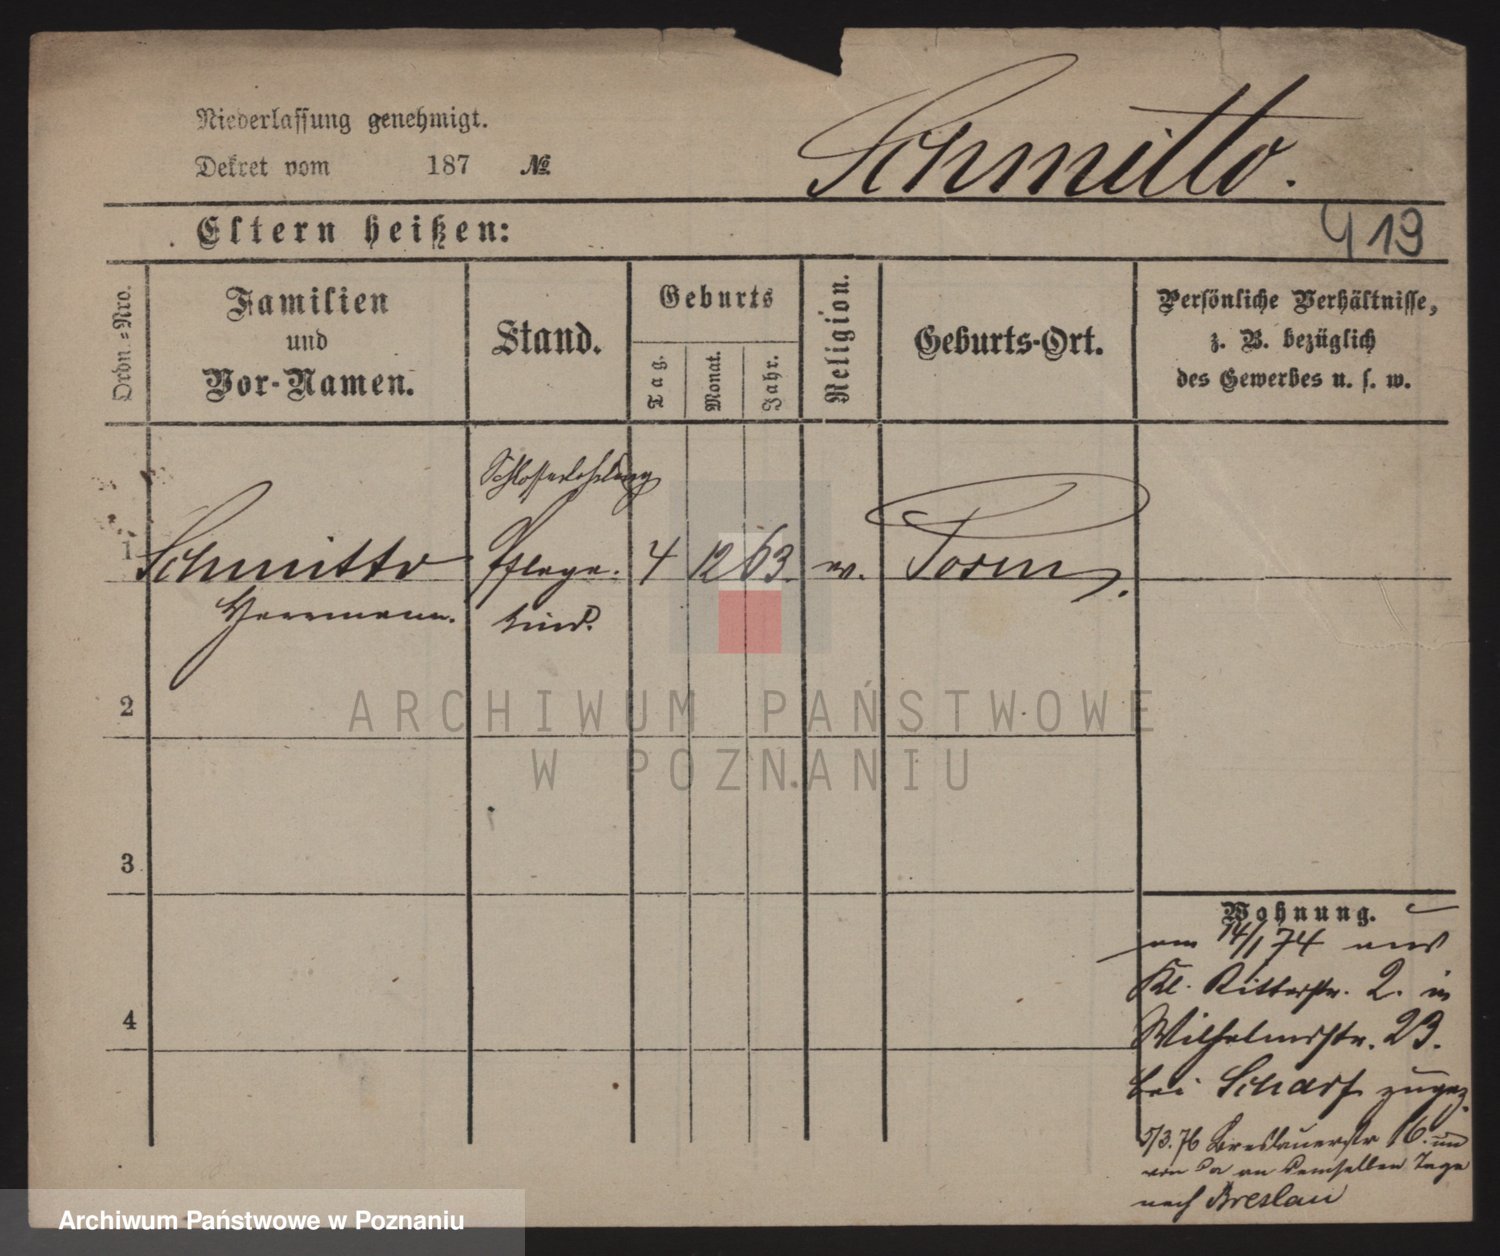 Niederlassung genehmigt.
Dekret vom 187 №
Schmitto.
Eltern heißen:
419
Ordn.-Nro.
Familien
und
Vor-Namen.
Stand.
Geburts
Tag.
Monat.
Jahr.
Religion.
Geburts-Ort.
Persönliche Verhältnisse,
z. B. bezüglich
des Gewerbes u. s. w.
Schlosserlehrling
1 Schmitto Pflege- 4 12 63. ev. Posen.
Herrmann. kind.
2
ARCHIWUM PAŃSTWOWE
W POZNANIU
3
Wohnung.
am 14/1 74 aus
Kl. Ritterstr. 2. in
4
Wilhelmsstr. 23.
bei Scharf zugez.
5/3.76 Breslauerstr 16. und
von da an demselben Tage
nach Breslau
Archiwum Państwowe w Poznaniu